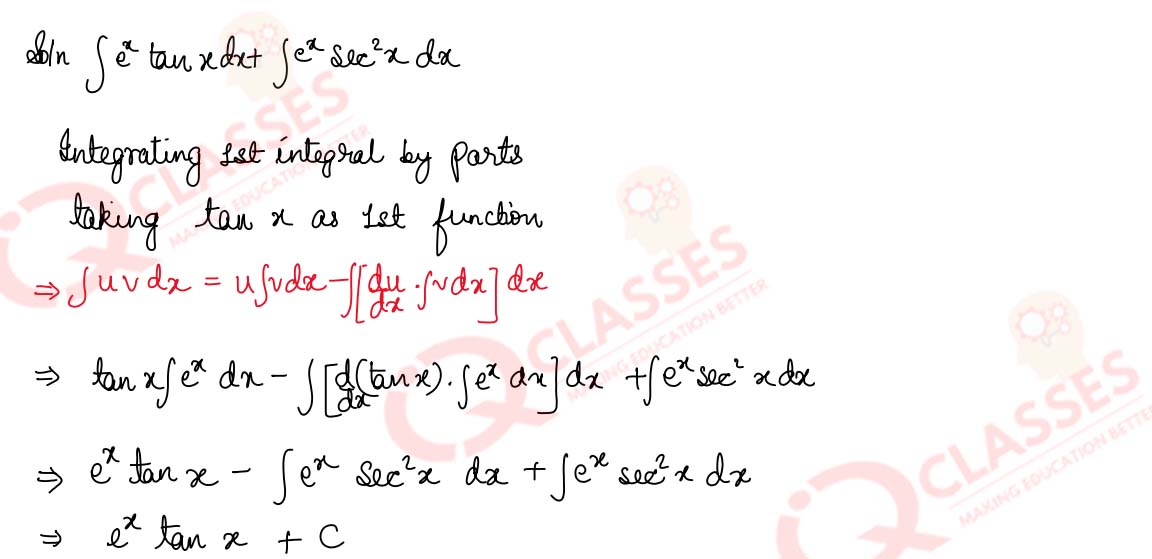 Soln ∫ eˣ tan x dx + ∫ eˣ sec²x dx
Integrating 1st integral by parts
taking tan x as 1st function
⇒ ∫ u v dx = u ∫ v dx − ∫ [du/dx . ∫ v dx] dx
⇒ tan x ∫ eˣ dx − ∫ [d/dx (tan x) . ∫ eˣ dx] dx + ∫ eˣ sec² x dx
⇒ eˣ tan x − ∫ eˣ sec²x dx + ∫ eˣ sec²x dx
⇒ eˣ tan x + C
CLASSES
MAKING EDUCATION BETTER
CLASSES
MAKING EDUCATION BETTER
CLASSES
MAKING EDUCATION BETTER